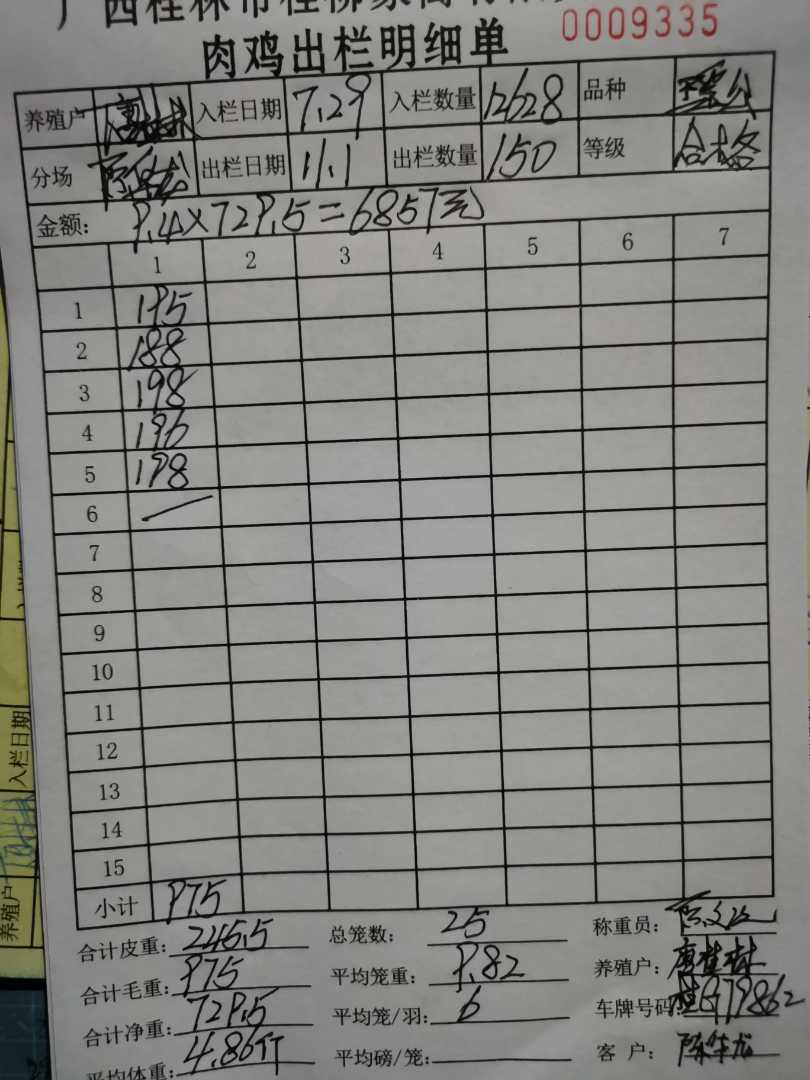 广西桂林市桂柳家禽有限
肉鸡出栏明细单 0009335
养殖户 唐桂林 入栏日期 7.29 入栏数量 12628 品种
分场 出栏日期 11.1 出栏数量 150 等级 合格
金额: 9.4×729.5=6857元
1 2 3 4 5 6 7
1 195
2 188
3 198
4 196
5 198
6 —
7
8
9
10
11
12
13
14
15
小计 975
合计皮重: 245.5 总笼数: 25 称重员:
合计毛重: 975 平均笼重: 9.82 养殖户: 唐桂林
合计净重: 729.5 平均笼/羽: 6 车牌号码: 桂G79862
平均体重: 4.86斤 平均磅/笼: 客户: 陈华龙
入栏日期
养殖户